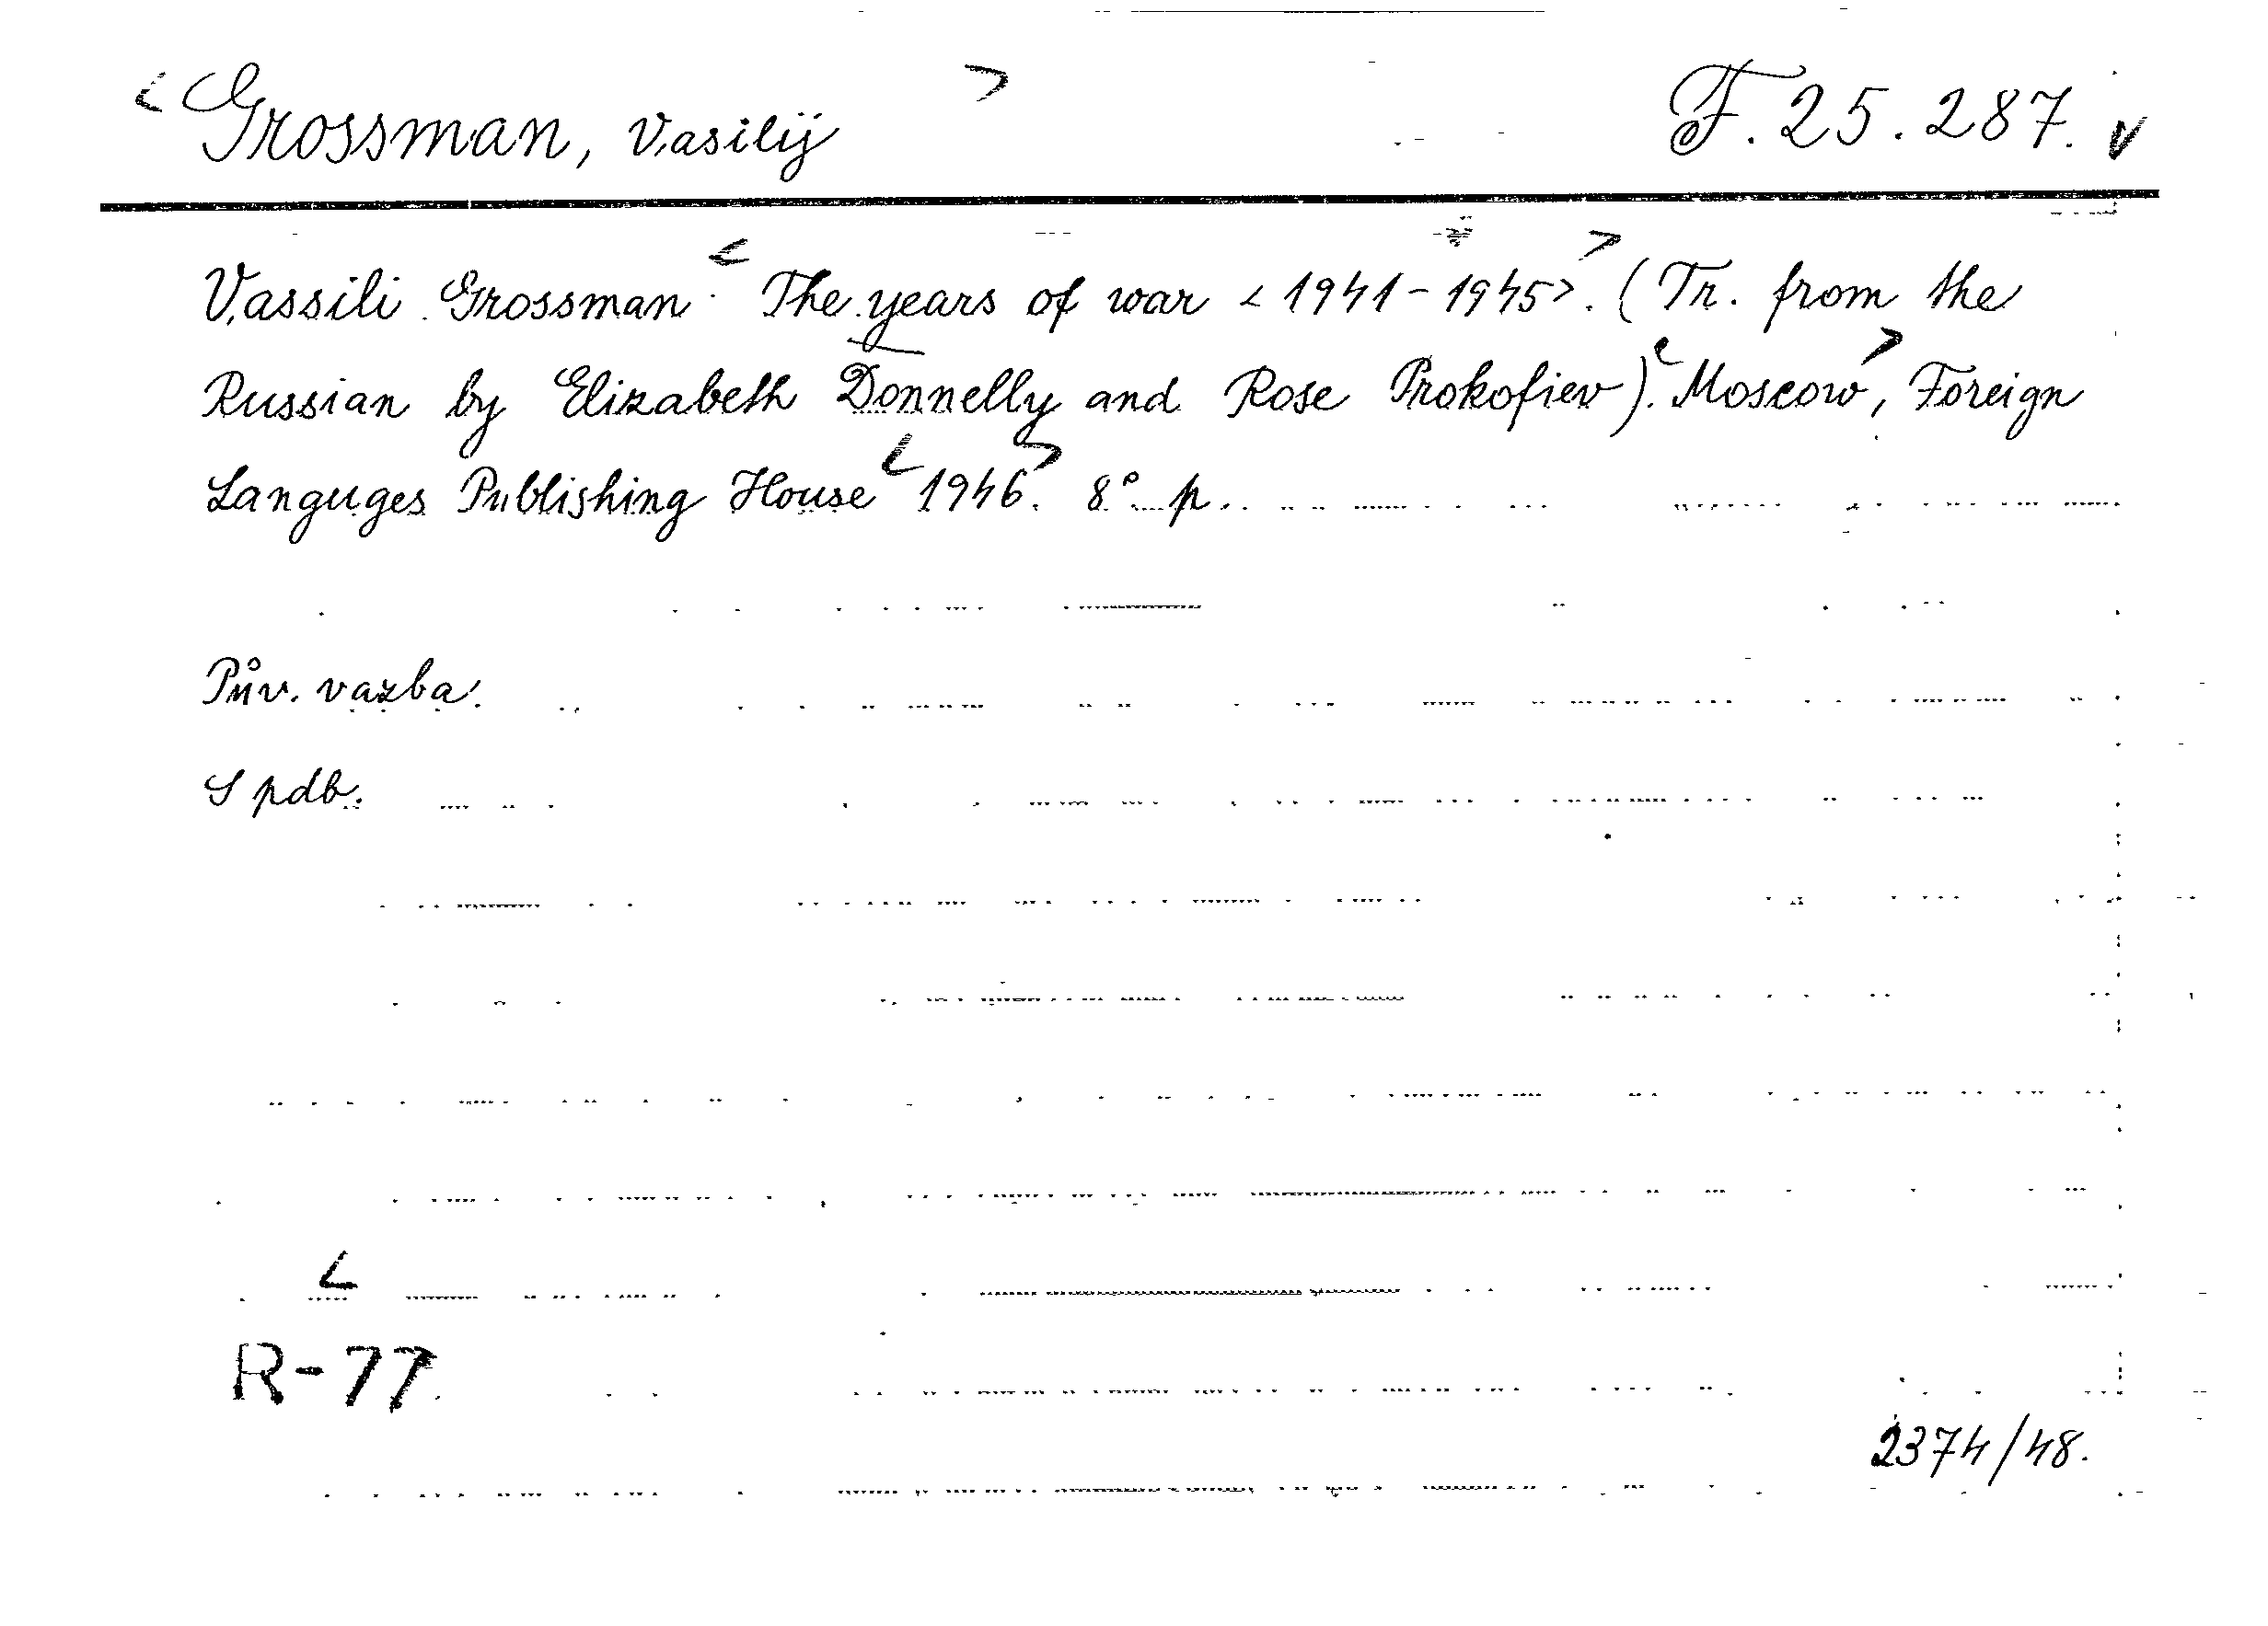 <Grossman, Vasilij> F.25.287. v
Vassili Grossman <The years of war <1941-1945>.> (Tr. from the
Russian by Elizabeth Donnelly and Rose Prokofiev). <Moscow>, Foreign
Languges Publishing House <1946>. 8° p.
Pův. vazba.
S pdb.
<
R-77.
2374/48.